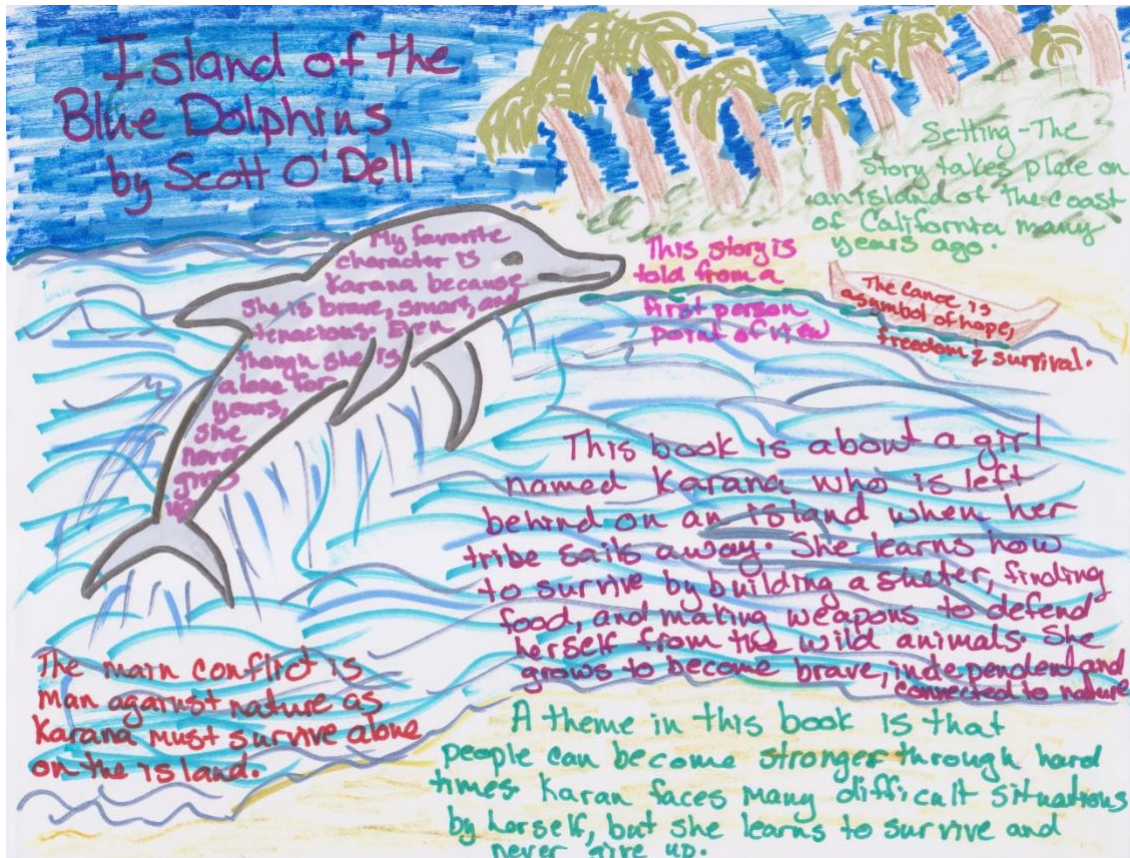 Island of the
Blue Dolphins
by Scott O'Dell
Setting-The
Story takes place on
an island of the coast
of California many
years ago.
My favorite
character is
Karana because
she is brave, smart, and
tenacious. Even
though she is
alone for
years,
she
never
gives
up.
This story is
told from a
first person
point of view
The Canoe is
a symbol of hope,
freedom & survival.
This book is about a girl
named Karana who is left
behind on an island when her
tribe sails away. She learns how
to survive by building a sheter, finding
food, and making weapons to defend
herself from the wild animals. She
grows to become brave, independent and
connected to nature
The main conflict is
man against nature as
Karana must survive alone
on the island.
A theme in this book is that
people can become stronger through hard
times. Karan faces many difficult situations
by herself, but she learns to survive and
never give up.